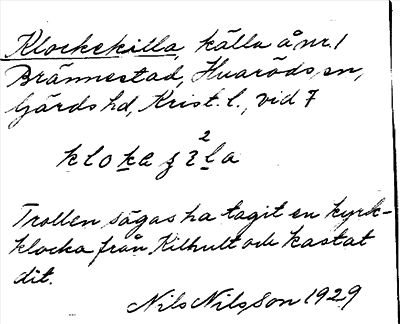 Klockekilla, källa å nr. 1
Brännestad, Huaröds sn,
Gärds hd, Krist. l., vid 7
2
Trollen sägas ha tagit en kyrk-
klocka från Kilhult och kastat
dit.
Nils Nilsson 1929